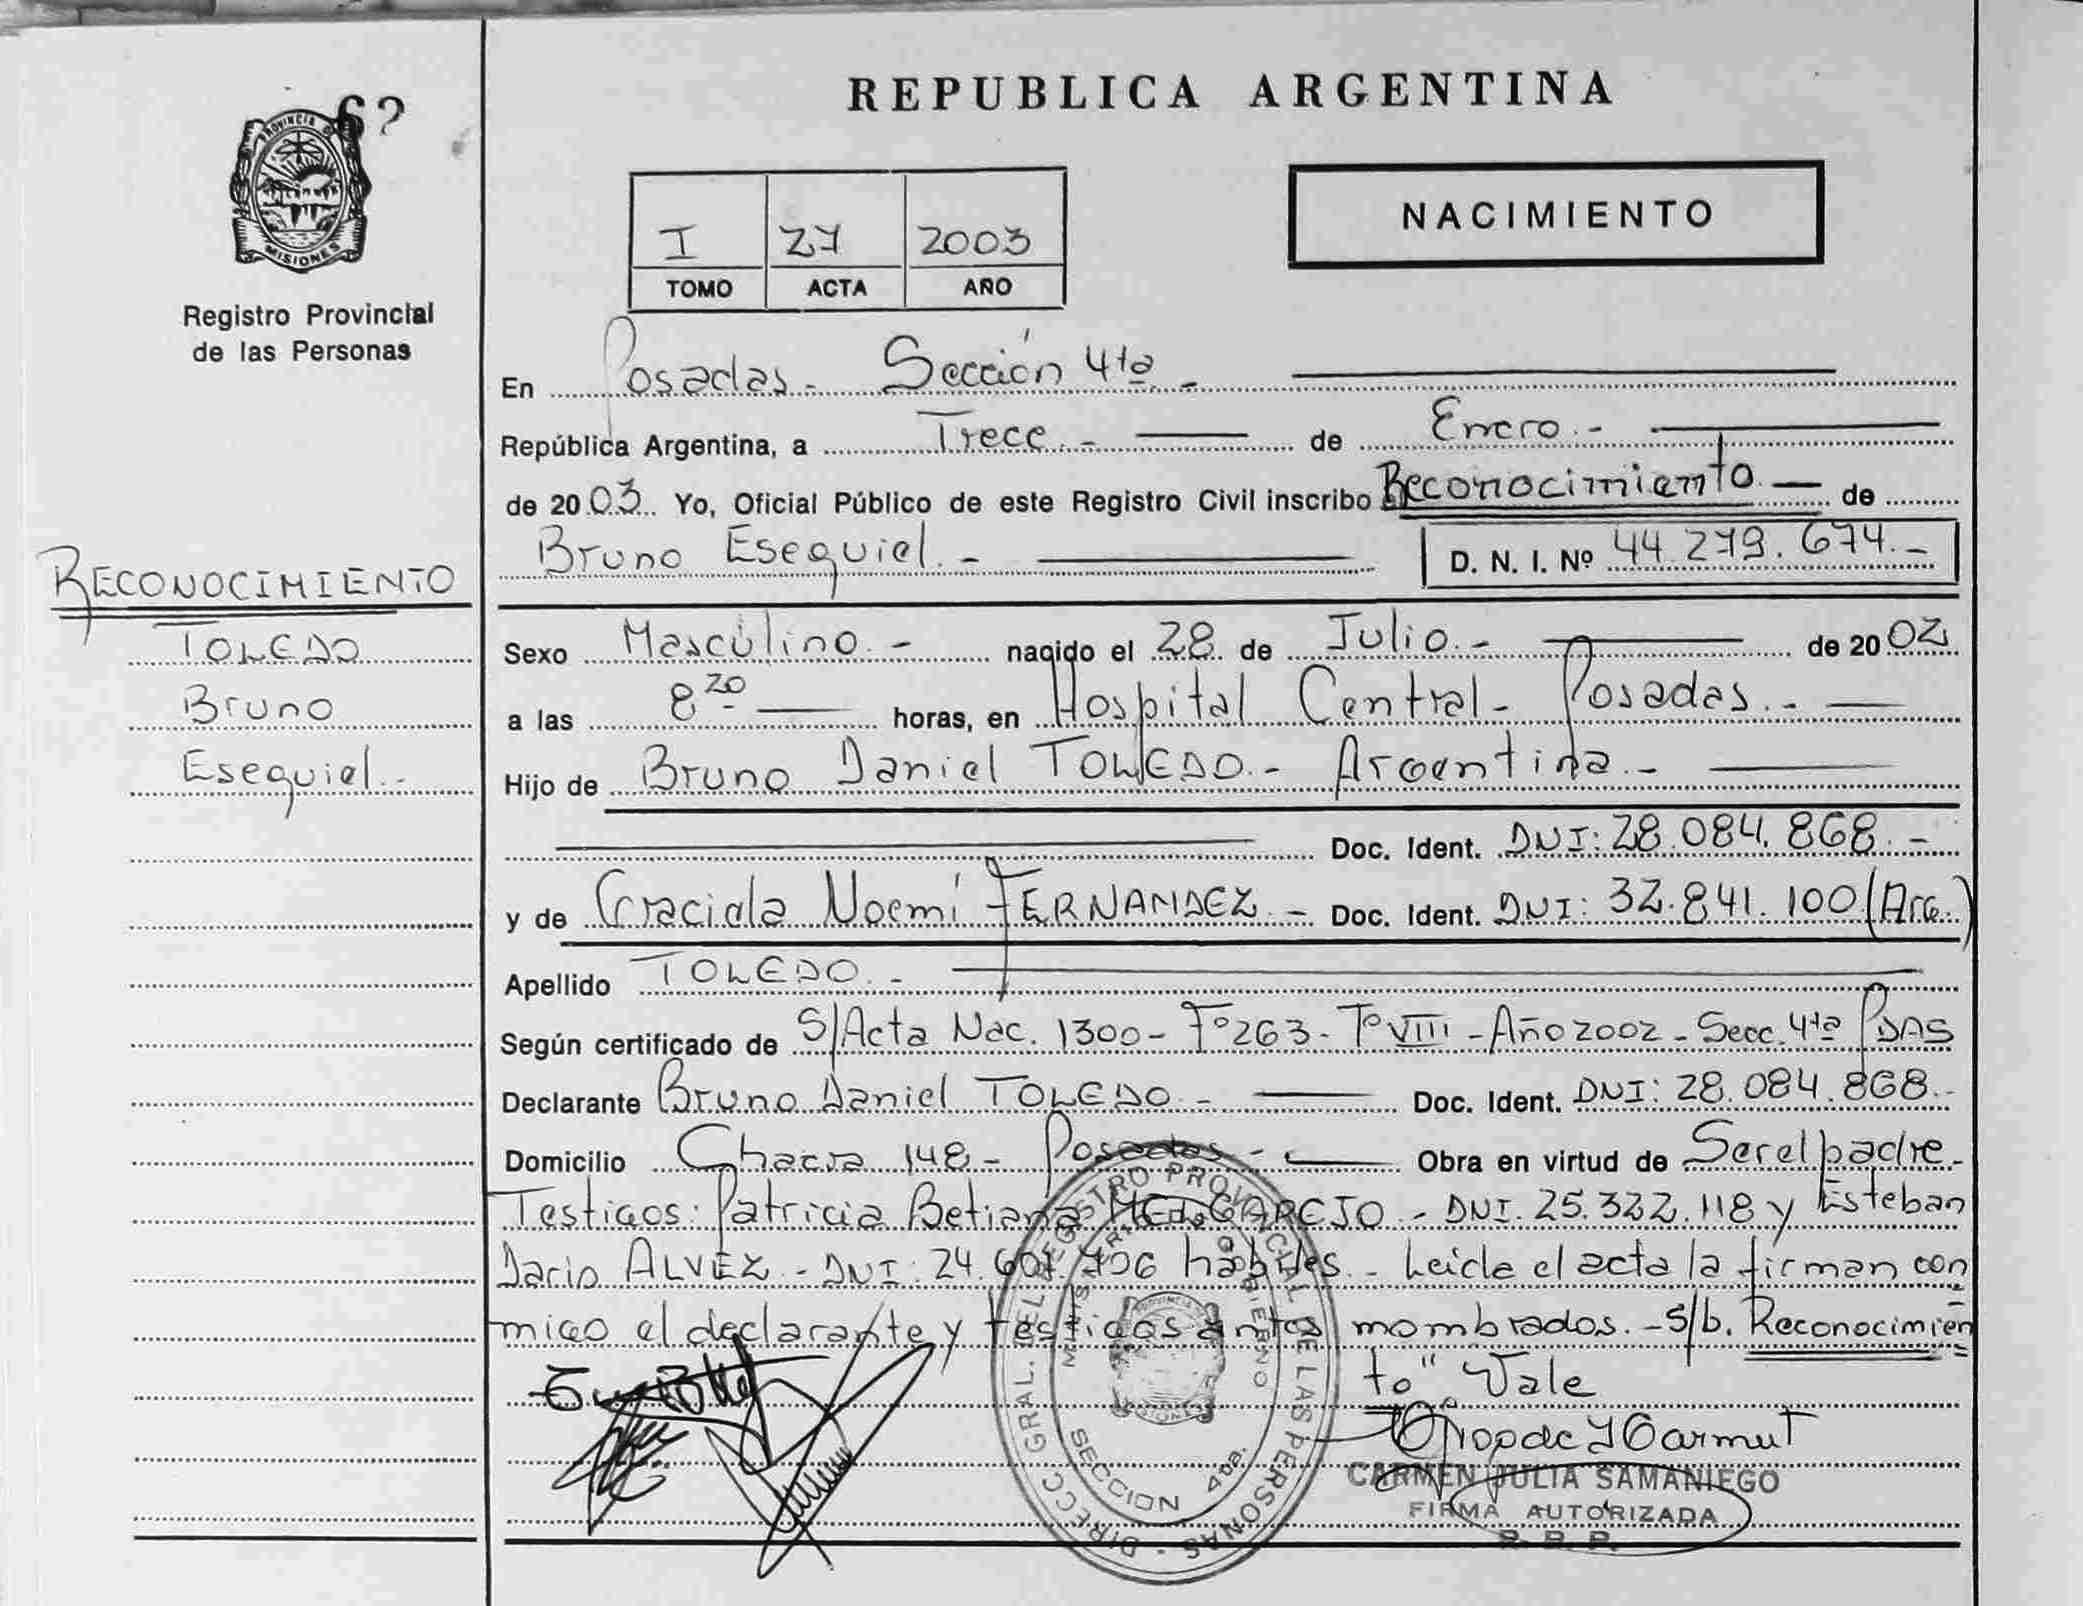 REPUBLICA ARGENTINA
6?
PROVINCIA DE MISIONES
Registro Provincial
de las Personas
I 27 2003
TOMO ACTA AÑO
NACIMIENTO
En Posadas.- Sección 4ta.-
República Argentina, a Trece.- de Enero.-
de 2003. Yo, Oficial Público de este Registro Civil inscribo Reconocimiento.- de
Bruno Esequiel.- D. N. I. Nº 44.279.674.-
RECONOCIMIENTO
TOLEDO
Bruno
Esequiel.-
Sexo Masculino.- nacido el 28 de Julio.- de 2002
a las 8 20 horas, en Hospital Central- Posadas.-
Hijo de Bruno Daniel TOLEDO.- Argentina.-
Doc. Ident. DNI: 28.084.868.-
y de Graciela Noemí FERNANDEZ.- Doc. Ident. DNI: 32.841.100 (Arg.)
Apellido TOLEDO.-
Según certificado de S/Acta Nac. 1300- Fº263- Tº VIII - Año 2002 - Secc. 4ta PDAS
Declarante Bruno Daniel TOLEDO.- Doc. Ident. DNI: 28.084.868.-
Domicilio Chacra 148- Posadas.- Obra en virtud de Ser el padre.-
Testigos: Patricia Betiana - DNI. 25.322.118 y Esteban
Dario ALVEZ.- DNI: 24. hábiles.- Leída el acta la firman con
migo el declarante y testigos antes mombrados.- S/b. Reconocimien
to" Vale
DIRECC. GRAL. DEL REGISTRO PROVINCIAL DE LAS PERSONAS
SECCION 4ta.
CARMEN JULIA SAMANIEGO
FIRMA AUTORIZADA
R. P. P.